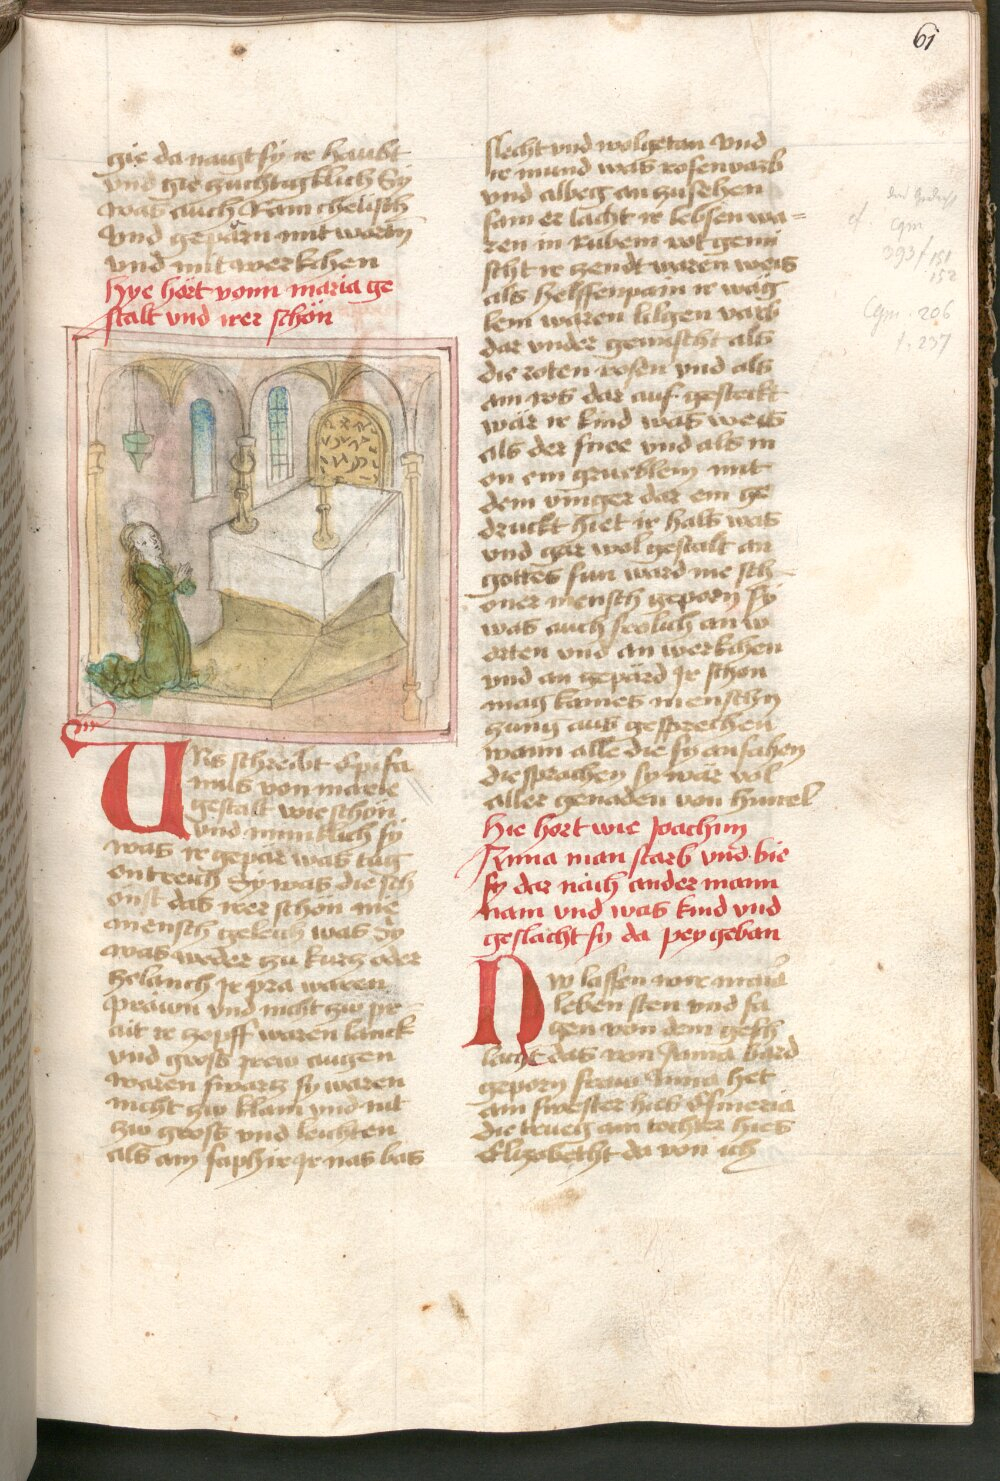 61
gie da naigt sy ir haubt
vnd gie zuchtigklich Sy
was auch kain chelisch
vnd gepärn mit worten
vnd mit werkchen
Hye hört vonn maria ge
stalt vnd irer schön
Uns schreibt Epifa
nius von marie
gestalt wie schön
vnd mintlich sy
was ir gepär was tug
entreich Sy was die sch
önst das irer schön nie
mensch geleich was Sy
was weder zu kurcz oder
ze lanch Ir pra waren
prawn vnd nicht zw pr
ait ir zopff waren lanck
vnd gross irew augen
waren swartz sy waren
nicht zw klain vnd nit
zw gross vnd leichten
als am saphir Ir nas was
slecht vnd wolgetan vnd
ir mund was rosenvarb
vnd albeg an zusehen
sam er lacht ir lebsen wa=
ren in Rubein rot gemi
scht ir zendt waren weis
als helffenpain ir wäg
lein waren lilgen varb
dar vnder gemischt als
die roten rosen vnd als
am ros dar auf gesteckt
wär ir kind was weis
als der snee vnd als in
en ein grueblein mit
dem vinger dar ein ge
druckt hiet ir hals was
vnd gar wol gestalt an
gottes sun ward nie sch
öner mensch geporn sy
was auch frölich an w
orten vnd an werkchen
vnd an gepärd Ir schön
mag kaines menschen
zung aus gesprechen
wann alle die sy ansahen
die sprachen sy wär vol
aller genaden von himel
Hie hört wie Joachim
Anna man starb vnd wie
sy dar nach ander mann
nam vnd was kind vnd
geslächt sy da pey geban
Nw lassen wir maria
leben sten vnd sa
gen von dem gesch
lächt das von Anna ward
geporn fraw Anna het
ain swester hies Esmeria
die trueg ain tochter hies
Elizabetht da von ich
cf. cgm
393 f 151
152
Cgm. 206
f. 237